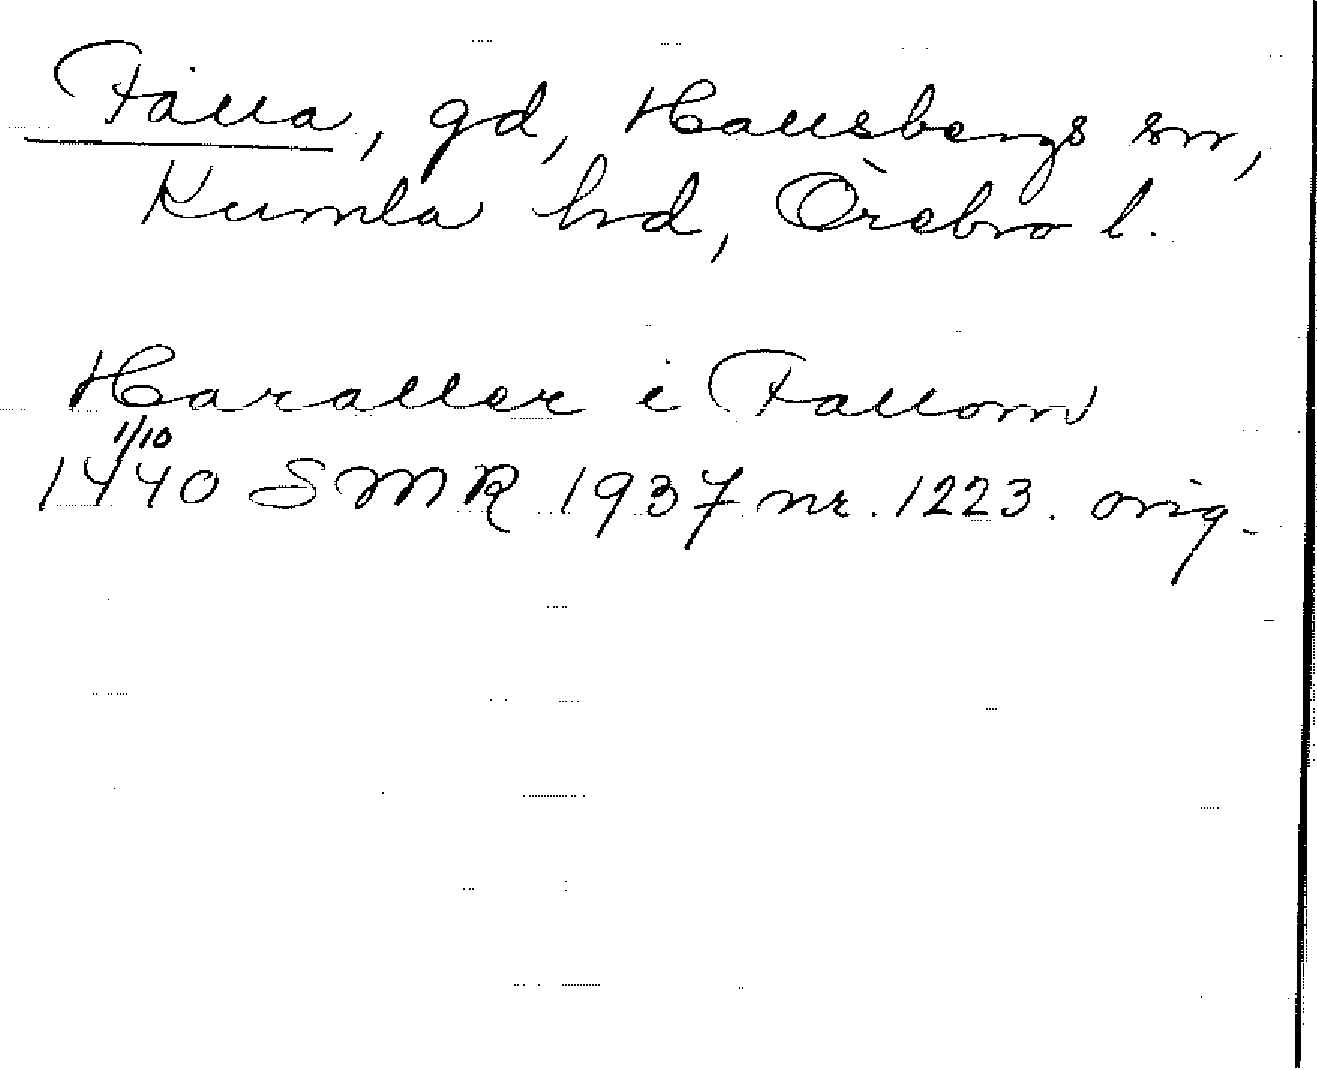 Fälla, gd, Hallsbergs sn,
Kumla hd, Örebro l.
Haraller i Fallom
1/10
1440 SMR 1937 nr. 1223. orig.